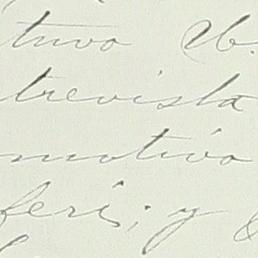 tuvo U.
trevista
motivo
feri; y